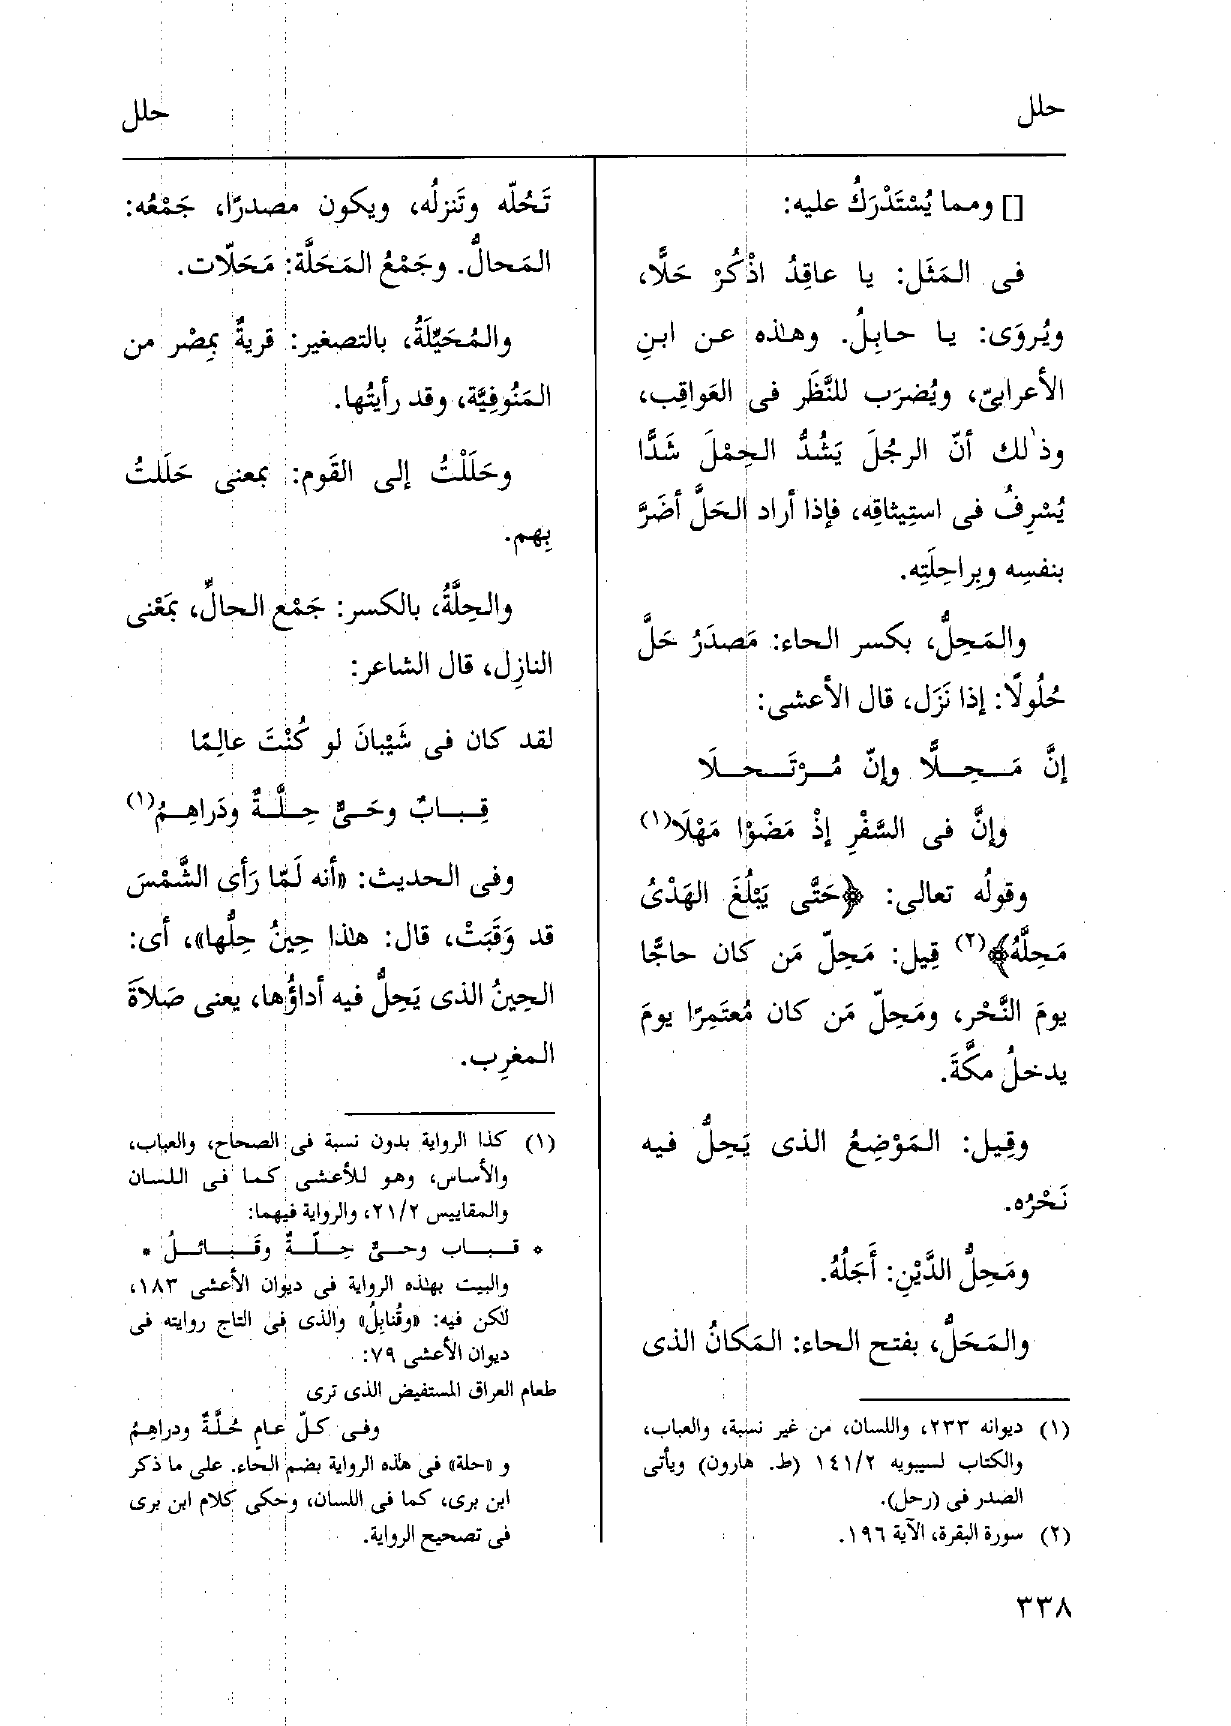 حلل
حلل
[] ومما يُسْتَدْرَكُ عليه:
فى المَثَل: يا عاقِدُ اذْكُرْ حَلًّا،
ويُروَى: يا حابِلُ. وهذه عن ابنِ
الأعرابىّ، ويُضرَب للنَّظَر فى العَواقِب،
وذٰلك أنّ الرجُلَ يَشُدُّ الحِمْلَ شَدًّا
يُسْرِفُ فى استِيثاقِه، فإذا أراد الحَلَّ أضَرَّ
بنفسِه وبِراحِلَتِه.
والمَحِلُّ، بكسر الحاء: مَصدَرُ حَلَّ
حُلُولًا: إذا نَزَل، قال الأعشى:
إنَّ مَـحِـلًّا وإنّ مُـرْتَـحـلَا
وإنَّ فى السَّفْرِ إذْ مَضَوْا مَهْلَا(١)
وقولُه تعالى: ﴿حَتَّى يَبْلُغَ الهَدْىُ
مَحِلَّهُ﴾(٢) قِيل: مَحِلّ مَن كان حاجًّا
يومَ النَّحْر، ومَحِلّ مَن كان مُعتَمِرًا يومَ
يدخلُ مكَّةَ.
وقِيل: المَوْضِعُ الذى يَحِلُّ فيه
نَحْرُه.
ومَحِلُّ الدَّيْنِ: أَجَلُهُ.
والمَحَلُّ، بفتح الحاء: المَكانُ الذى
(١) ديوانه ٢٣٣، واللسان، من غير نسبة، والعباب،
والكتاب لسيبويه ١٤١/٢ (ط. هارون) ويأتى
الصدر فى (رحل).
(٢) سورة البقرة، الآية ١٩٦.
تَحُلّه وتَنزلُه، ويكون مصدرًا، جَمْعُه:
المَحالُّ. وجَمْعُ المَحَلَّة: مَحَلّات.
والمُحَيِّلَةُ، بالتصغير: قريةٌ بمِصْر من
المَنُوفِيَّة، وقد رأيتُها.
وحَلَلْتُ إلى القَوم: بمعنى حَلَلتُ
بِهم.
والحِلَّةُ، بالكسر: جَمْع الحالِّ، بمَعْنى
النازِل، قال الشاعر:
لقد كان فى شَيْبانَ لو كُنْتَ عالِمًا
قِـبـابٌ وحَـىٌّ حِـلَّـةٌ ودَراهِـمُ(١)
وفى الحديث: «أنه لَمّا رَأى الشَّمْسَ
قد وَقَبَتْ، قال: هٰذا حِينُ حِلِّها»، أى:
الحِينُ الذى يَحِلُّ فيه أداؤُها، يعنى صَلاةَ
المغرِب.
(١) كذا الرواية بدون نسبة فى الصحاح، والعباب،
والأساس، وهو للأعشى كما فى اللسان
والمقاييس ٢١/٢، والرواية فيهما:
* قـبـاب وحـىٌّ حِـلّـةٌ وقَـبـائـلُ *
والبيت بهٰذه الرواية فى ديوان الأعشى ١٨٣،
لكن فيه: «وقُنابِلُ» والذى فى التاج روايته فى
ديوان الأعشى ٧٩:
طعام العراق المستفيض الذى ترى
وفى كلّ عامٍ حُلَّةٌ ودراهِمُ
و «حلة» فى هٰذه الرواية بضم الحاء. على ما ذكر
ابن برى، كما فى اللسان، وحكى كلام ابن برى
فى تصحيح الرواية.
٣٣٨